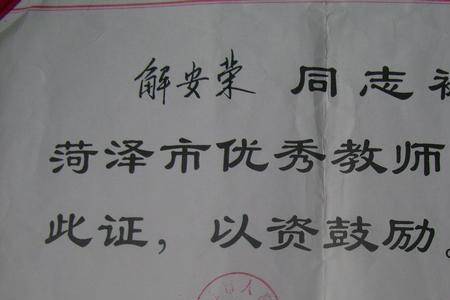 解安荣 同志被
菏泽市优秀教师
此证，以资鼓励。